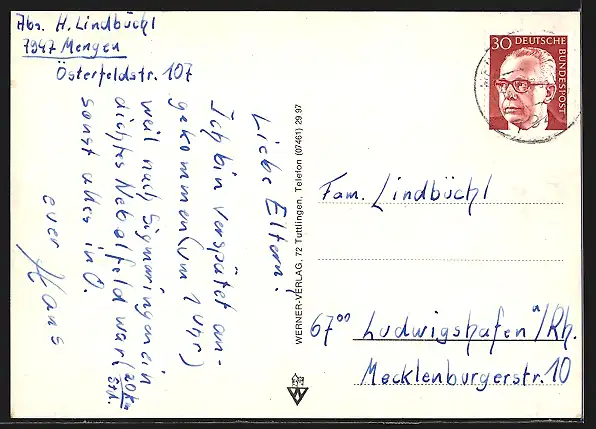 Abs. H. Lindbüchl
7947 Mengen
Österfeldstr. 107
Liebe Eltern!
Ich bin verspätet an-
gekommen (um 1 Uhr)
weil nach Sigmaringen ein
dichtes Nebelfeld war (20 km
sonst alles in O.
euer Hans
WERNER-VERLAG, 72 Tuttlingen, Telefon (07461) 29 97
W
30 DEUTSCHE
BUNDESPOST
Fam. Lindbüchl
67⁰⁰ Ludwigshafen a/Rh.
Mecklenburgerstr. 10